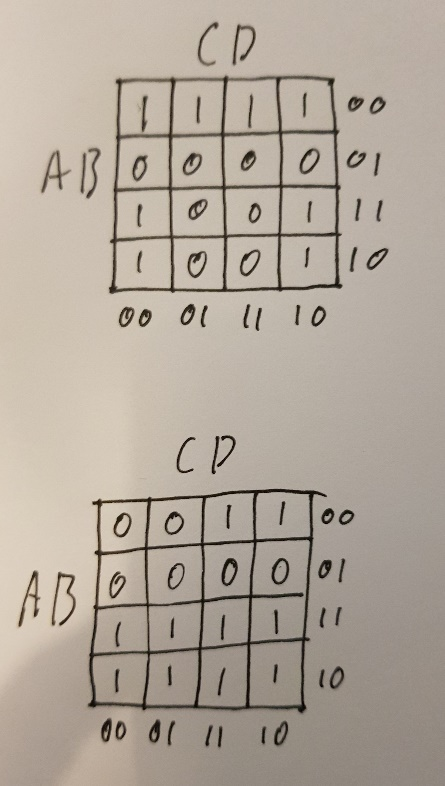 CD
1 1 1 1 00
AB 0 0 0 0 01
1 0 0 1 11
1 0 0 1 10
00 01 11 10
CD
0 0 1 1 00
0 0 0 0 01
AB 1 1 1 1 11
1 1 1 1 10
00 01 11 10